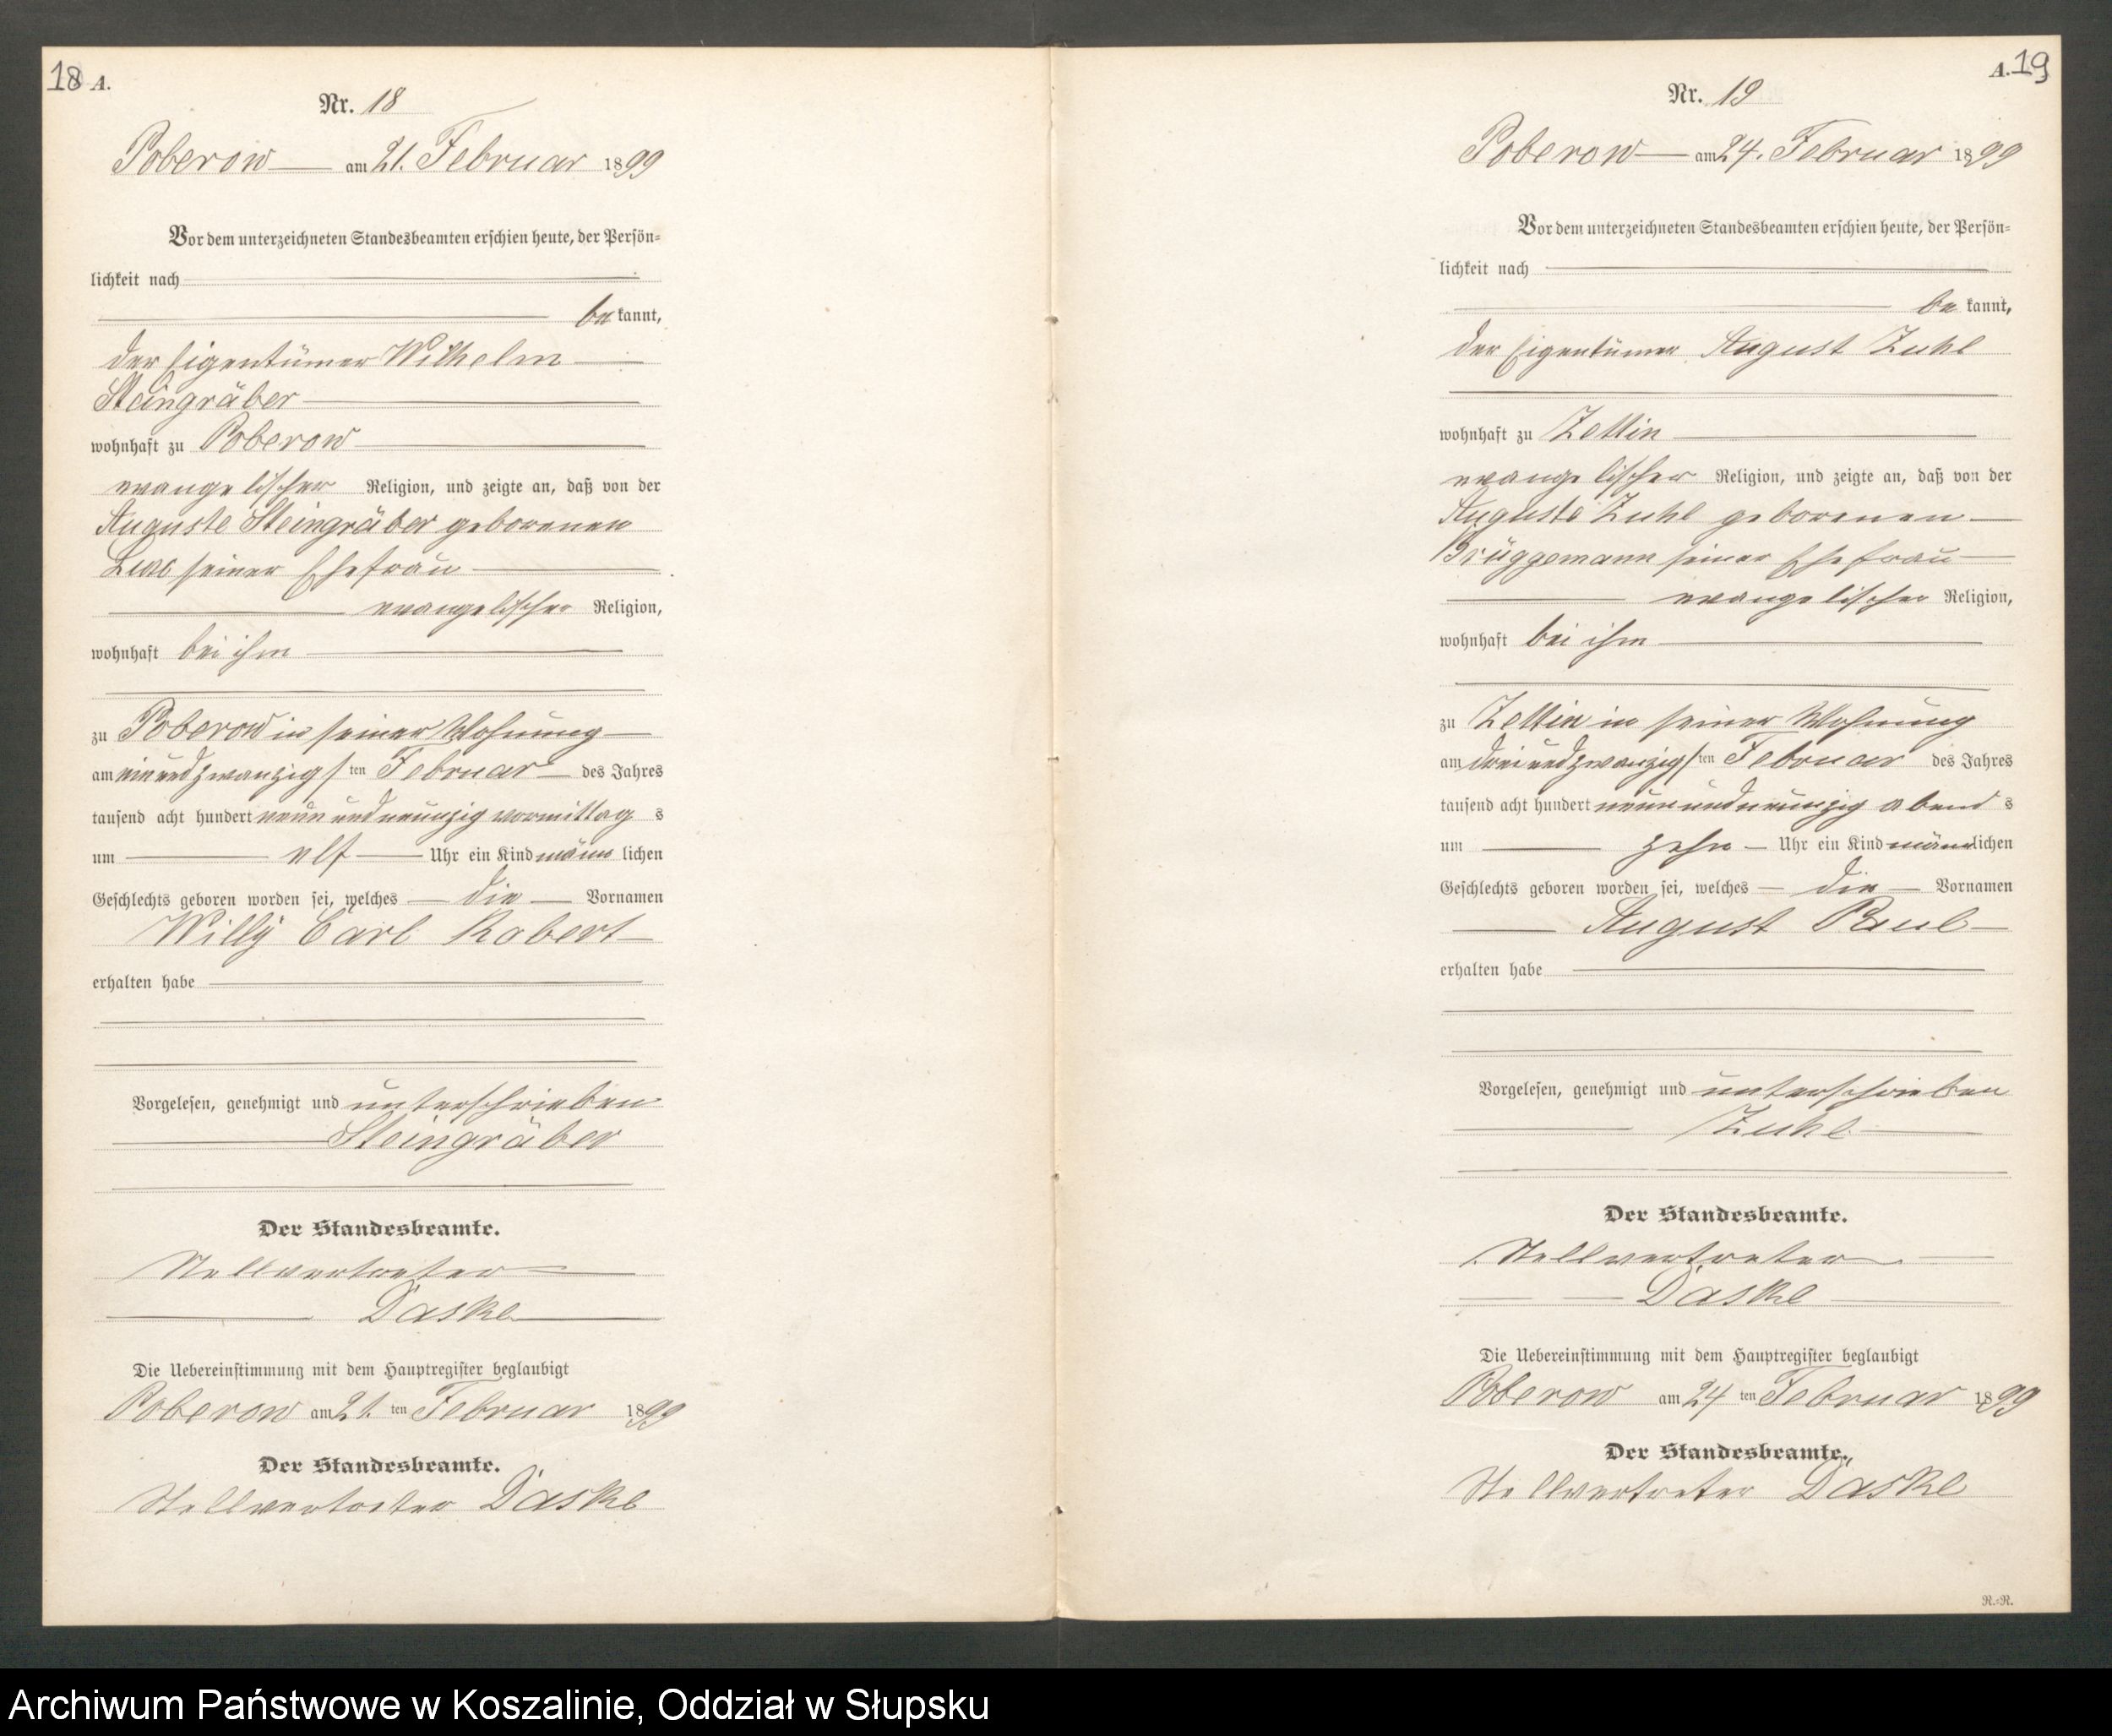 18 A.
Nr. 18
Poberow am 21. Februar 1899
Vor dem unterzeichneten Standesbeamten erschien heute, der Persön-
lichkeit nach
be kannt,
der Eigentümer Wilhelm
Steingräber
wohnhaft zu Poberow
evangelischer Religion, und zeigte an, daß von der
Auguste Steingräber geborenen
seiner Ehefrau
evangelischer Religion,
wohnhaft bei ihm
zu Poberow in seiner Wohnung
am einundzwanzigsten Februar des Jahres
tausend acht hundert neun und neunzig vormittag s
um elf Uhr ein Kind männ lichen
Geschlechts geboren worden sei, welches die Vornamen
Willy Carl Robert
erhalten habe
Vorgelesen, genehmigt und unterschrieben
Steingräber
Der Standesbeamte.
Stellvertreter
Daske
Die Uebereinstimmung mit dem Hauptregister beglaubigt
Poberow am 21. ten Februar 1899
Der Standesbeamte.
Stellvertreter Daske
A. 19
Nr. 19
Poberow am 24. Februar 1899
Vor dem unterzeichneten Standesbeamten erschien heute, der Persön-
lichkeit nach
be kannt,
der Eigentümer August Zuhl
wohnhaft zu Zettin
evangelischer Religion, und zeigte an, daß von der
Auguste Zuhl geborenen
Brüggemann seiner Ehefrau
evangelischer Religion,
wohnhaft bei ihm
zu Zettin in seiner Wohnung
am dreiundzwanzigsten Februar des Jahres
tausend acht hundert neun und neunzig abend s
um zehn Uhr ein Kind männlichen
Geschlechts geboren worden sei, welches die Vornamen
August Paul
erhalten habe
Vorgelesen, genehmigt und unterschrieben
Zuhl
Der Standesbeamte.
Stellvertreter
Daske
Die Uebereinstimmung mit dem Hauptregister beglaubigt
Poberow am 24 ten Februar 1899
Der Standesbeamte.
Stellvertreter Daske
R.-R.
Archiwum Państwowe w Koszalinie, Oddział w Słupsku